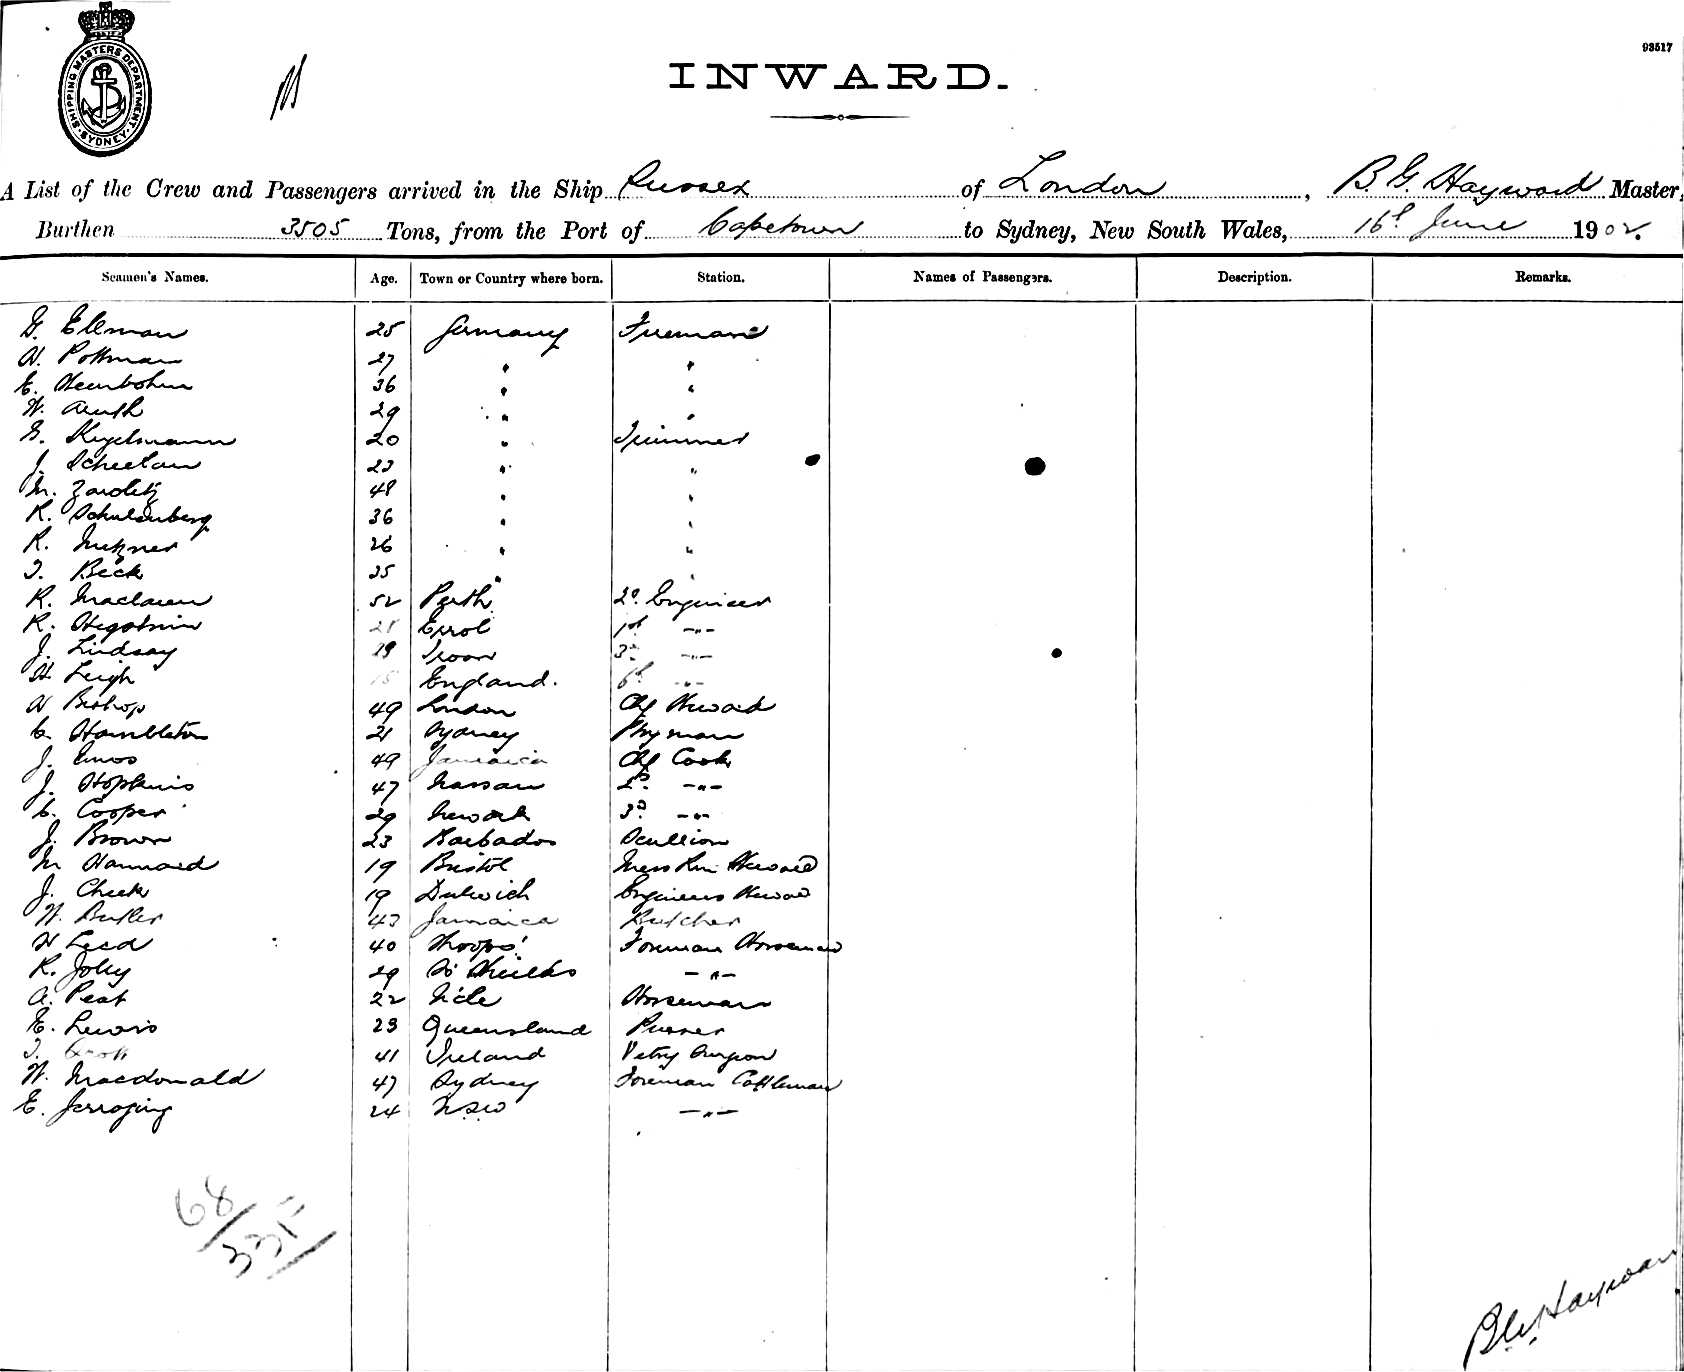 SHIPPING MASTERS DEPARTMENT. SYDNEY.
93517
INWARD.
A List of the Crew and Passengers arrived in the Ship Sussex of London, B. G. Hayward Master,
Burthen 3505 Tons, from the Port of Capetown to Sydney, New South Wales, 16th June 1902.
Seamen's Names. Age. Town or Country where born. Station. Names of Passengers. Description. Remarks.
G. Elleman 25 Germany Fireman
H. Pottman 27 " "
E. 36 " "
W. 29 " "
G. Kegelmann 20 " Trimmer
J. 23 " "
M. 48 " "
R. Schulenberg 36 " "
R. 26 " "
T. Beck 25 " "
R. Maclaren 52 Perth 2d. Engineer
R. Errol 1st -"-
J. Lindsay 29 Troon 3d -"-
H. Leigh England. 6th -"-
H Bishop 49 London Chf Steward
C. Hambleton 21 Sydney Ptryman
J. 49 Jamaica Chf Cook
J. Hopkins 47 Nassau 2d. -"-
C. Cooper 29 Newark 3d. -"-
J. Brown 23 Barbados Scullion
M Hannaford 19 Bristol Mess Rm Steward
J. Cheek 19 Dulwich Engineers Steward
W. Butler 43 Jamaica Butcher
H 40 Foreman Horseman
R. 29 So Shields -"-
A. Peat 22 Horseman
E. Lewis 23 Queensland Purser
T. 41 Ireland Vetry Surgeon
W. Macdonald 47 Sydney Foreman Cattleman
E. 24 NSW -"-
68
335
B G Hayward